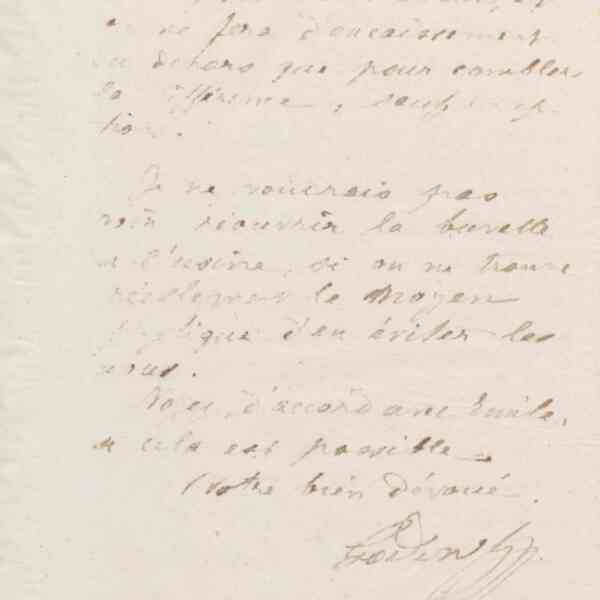 ne fera d'encaissement
au dehors que pour combler
la différence, sauf excep-
tion.
Je ne voudrais pas
voir réouvrir la buvette
à l'usine, si on ne trouve
réellement le moyen
pratique d'en éviter les
abus.
Voyez, d'accord avec Emile,
si cela est possible.
Votre bien dévoué.
Godin